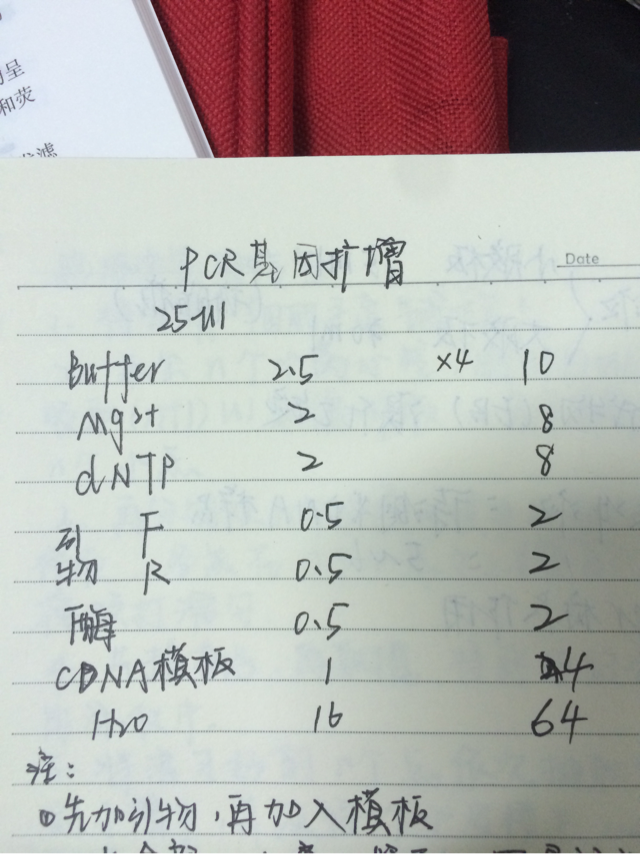 呈
和荧
滤
PCR基因扩增
Date
25ul
Buffer 2.5 ×4 10
Mg2+ 2 8
dNTP 2 8
引 F 0.5 2
物 R 0.5 2
酶 0.5 2
CDNA模板 1 4
H2O 16 64
注:
①先加引物,再加入模板